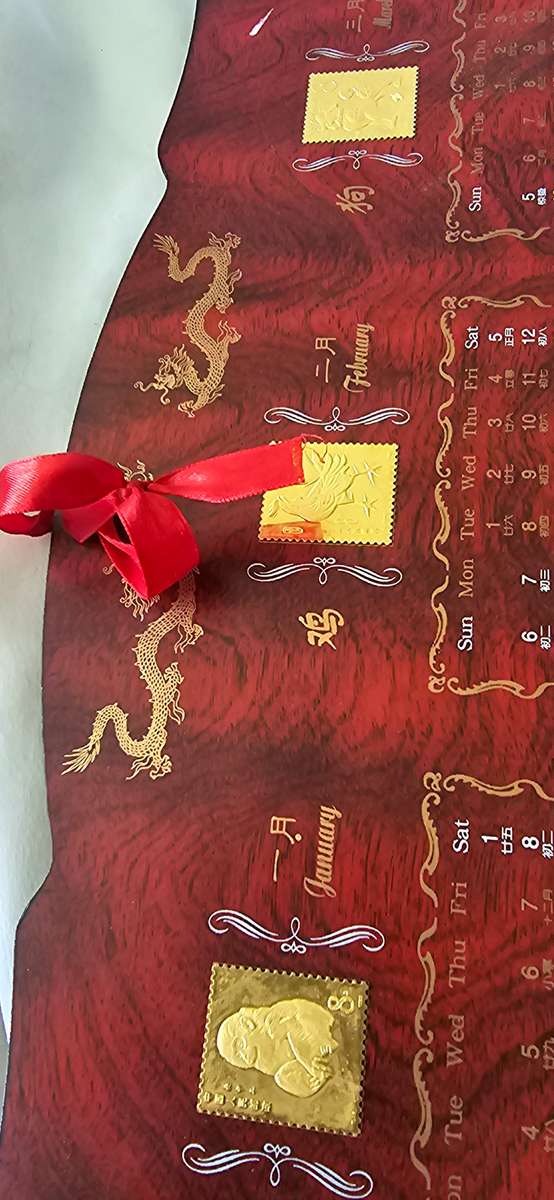 一月
January
8
Tue Wed Thu Fri Sat
1
廿五
4 5 6 7 8
廿八 廿九 小寒 十二月 初二
二月
February
鸡
Sun Mon Tue Wed Thu Fri Sat
1 2 3 4 5
廿六 廿七 廿八 立春 正月
6 7 8 9 10 11 12
初二 初三 初四 初五 初六 初七 初八
三月
March
狗
Sun Mon Tue Wed Thu Fri
1 2 3
5 6 7 8 9 10
惊蛰